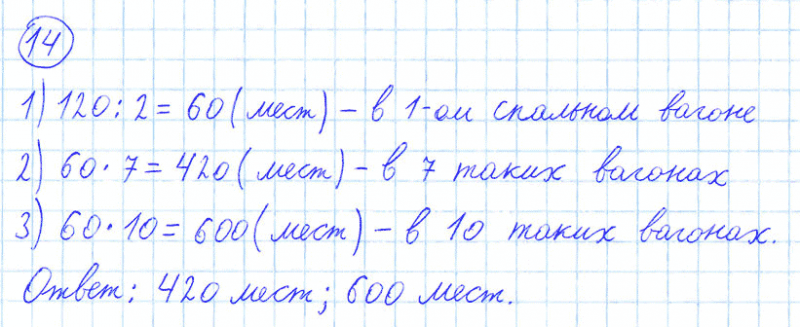 14
1) 120 : 2 = 60 (мест) – в 1-ом спальном вагоне
2) 60 · 7 = 420 (мест) – в 7 таких вагонах
3) 60 · 10 = 600 (мест) – в 10 таких вагонах.
Ответ: 420 мест; 600 мест.